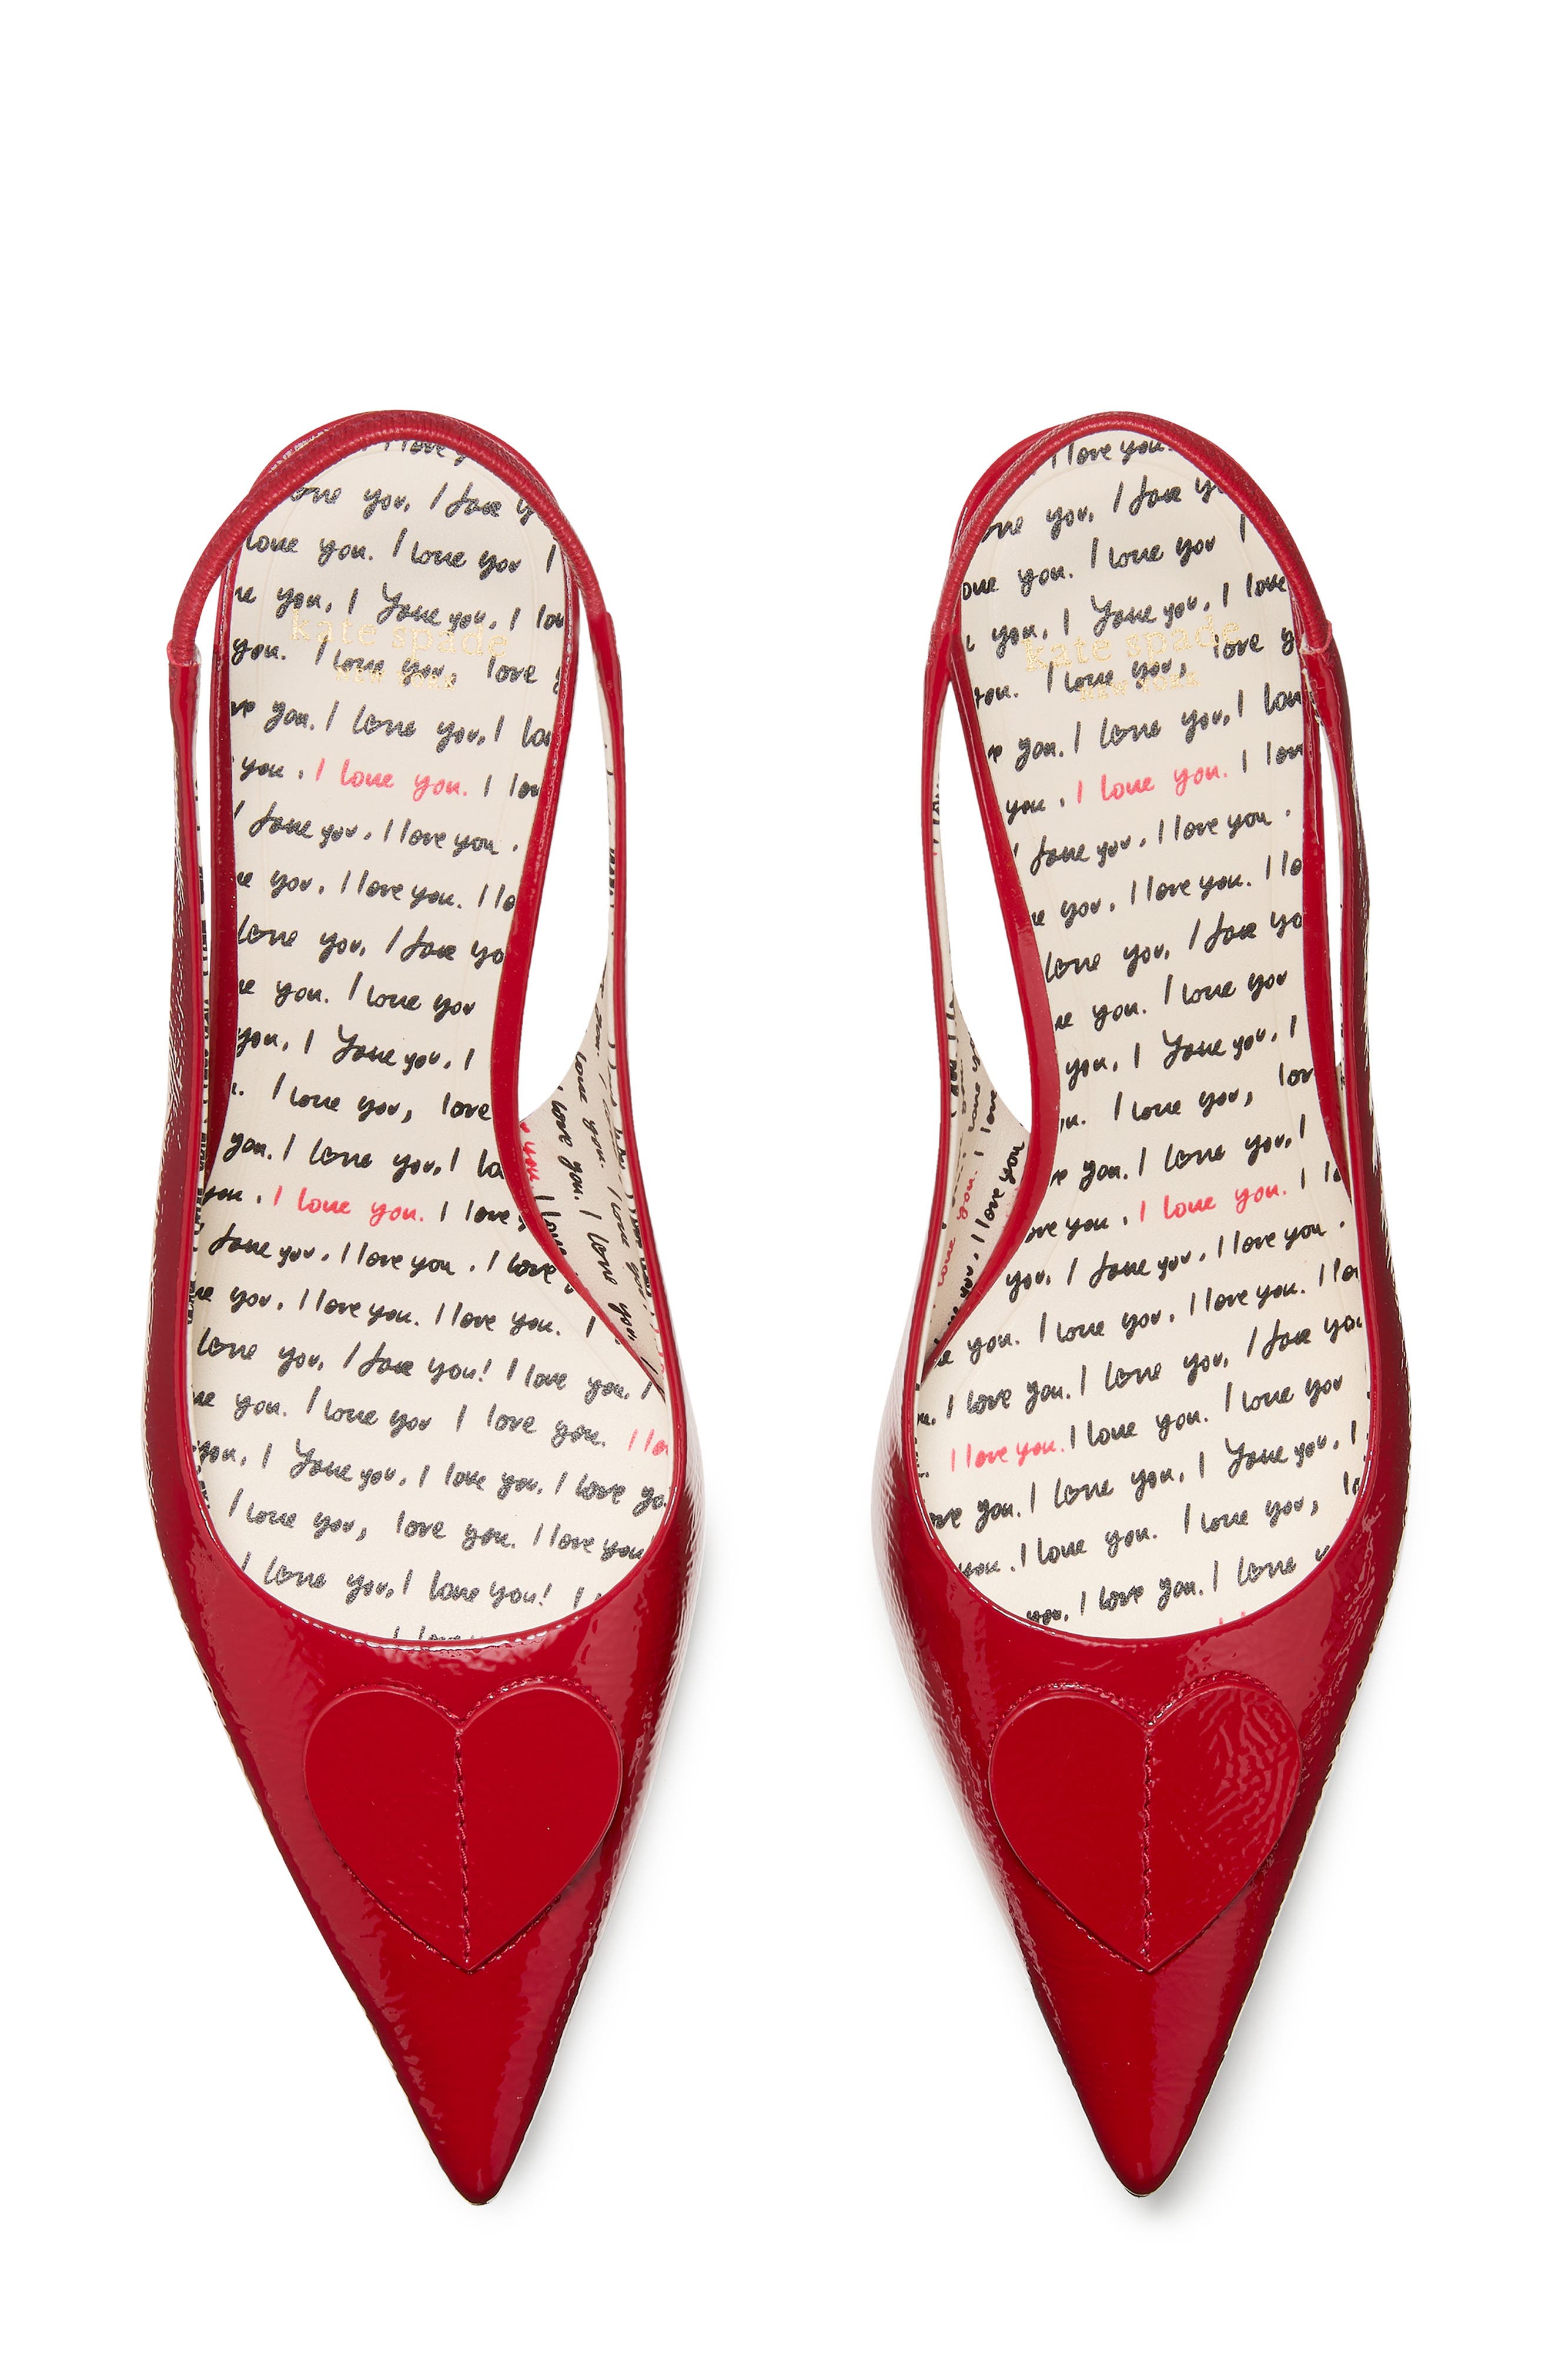 I love y
love you, I love y
love you. I love you I
ve you, I love you, I lov
kate spade
you. I love you, love y
NEW YORK
ve you. I love you, I lov
you. I love you. I lov
I love you. I love you.
ve you. I love you. I lo
love you, I love yo
ve you. I love you
you, I love you, I
I love you, love
you. I love you, I lo
you. I love you. I love y
love you. I love you. I love
ve you. I love you. I love you. I
love you, I love you! I love you. I
ve you. I love you I love you. I lo
you, I love you, I love you. I love yo
I love you, love you. I love you
I love you, I love you!
I love
I love you.
ove you, I love y
ove you. I love you I
you, I love you, I love
kate spade
you. I love you, love y
NEW YORK
ve you. I love you, I lov
you. I love you. I lov
I love you. I love you.
ve you. I love you. I lo
love you, I love yo
ve you. I love you
you, I love you, I
u. I love you, lov
ve you. I love you, I
ove you. I love you. I l
you. I love you. I love you.
ve you. I love you. I love you. I lo
u. I love you. I love you, I love you
I love you. I love you. I love you
ove you. I love you, I love you, I
you. I love you. I love you, lo
you. I love you. I love y